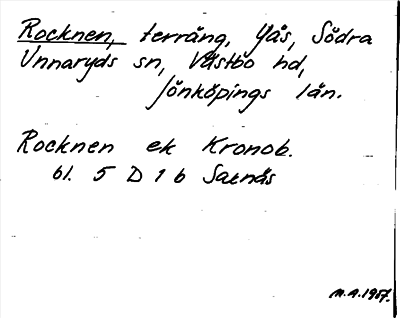 Rocknen, terräng, Yås, Södra
Unnaryds sn, Västbo hd,
Jönköpings län.
Rocknen ek Kronob.
bl. 5 D 1 b Saknäs
M.A. 1957.